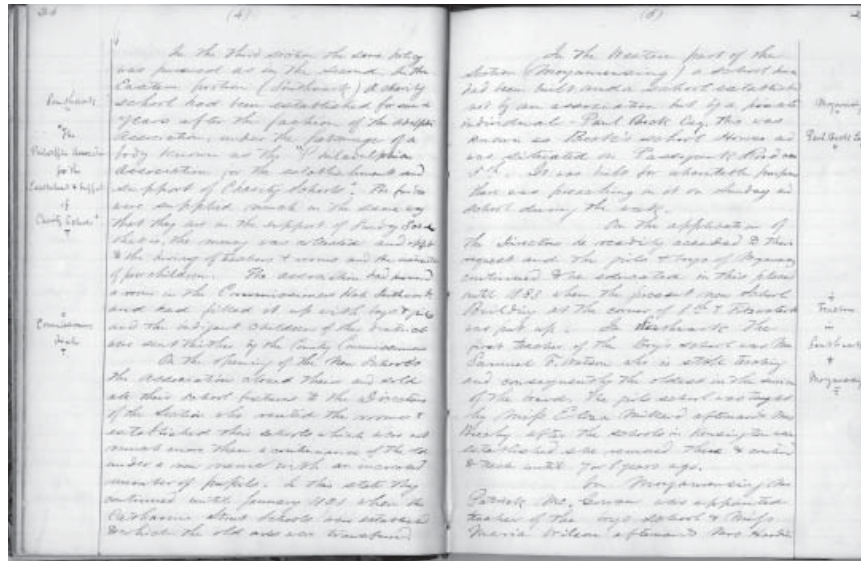 24 (4)
In the third section the same policy
was pursued as in the second. In the
Eastern portion (Southwark) a charity
school had been established for some
years after the fashion of the Adelphi
Association, under the patronage of a
body known as the "Philadelphia
Association for the establishment and
support of Charity Schools". The funds
were supplied much in the same way
that they are in the support of Sunday Schools
that is, the money was collected and
to the hiring of teachers & rooms and the
of poor children. The association had
a room in the Commissioners Hall Southwark
and had fitted it up with
and the indigent children of the district
was sent thither by the County Commissioners
On the opening of the New Schools
the association closed theirs and sold
all their school fixtures to the Directors
of the Section who rented the rooms &
established their schools which were not
much more than a continuance of the old
under a new name with an increased
number of pupils. In this state they
continued until January 1821 when the
Catharine Street Schools were established
to which the old ones was transferred
Southwark
"The
Philadelphia Association
for the
Establishment & Support
of
Charity Schools"
Commissioners
Hall
(5)
In the Western part of the
Section (Moyamensing) a school
had been built and a school established
not by an association but by a private
individual - Paul Beck Esq. This was
known as Beck's school House and
was situated on Passyunk Road
5th. It was built for charitable purposes
there was preaching in it on Sunday and
school during the week.
On the application of
the Directors he readily acceded to their
request and the girls & boys of
continued to be educated in this place
until 1833 when the present new School
Building at the corner of 8th & Fitzwater
was put up. In Southwark the
first teacher of the Boy's school was Mr
Samuel F. Watson who is still teaching
and consequently the oldest in the service
of the board. The girls school was taught
by Miss Eliza Millard afterward Mrs
after the schools in Kensington were
established she removed there &
to teach until 7 or 8 years ago.
In Moyamensing Mr
Patrick Mc. Gowan was appointed
teacher of the boys school & Miss
Maria Wilson afterward Mrs
Paul Beck
Teachers
in
Southwark
&